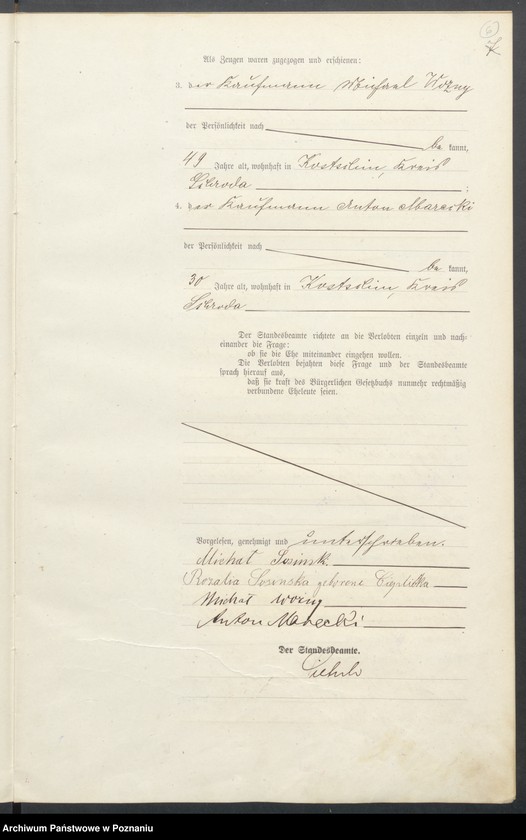 6
7
Als Zeugen waren zugezogen und erschienen:
3. der Kaufmann Michael Wozny
der Persönlichkeit nach
be kannt,
49 Jahre alt, wohnhaft in Kostschin, Kreis
Schroda ;
4. der Kaufmann Anton Marecki
der Persönlichkeit nach
be kannt,
30 Jahre alt, wohnhaft in Kostschin, Kreis
Schroda
Der Standesbeamte richtete an die Verlobten einzeln und nach-
einander die Frage:
ob sie die Ehe miteinander eingehen wollen.
Die Verlobten bejahten diese Frage und der Standesbeamte
sprach hierauf aus,
daß sie kraft des Bürgerlichen Gesetzbuchs nunmehr rechtmäßig
verbundene Eheleute seien.
Vorgelesen, genehmigt und unterschrieben.
Michał Sosinski
Rozalia Sosinska geborene
Michał Wozny
Anton Marecki
Der Standesbeamte.
Archiwum Państwowe w Poznaniu